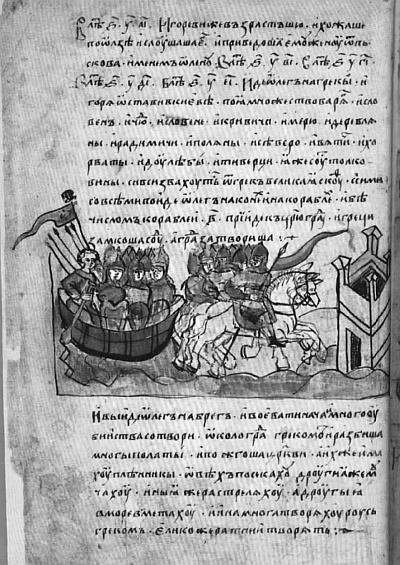 В лѣт҃ . ѕ҃ . у҃ . аı҃ . Игореви же възрастъшю . и хожаше
по ѡлзѣ и слоушаша е҃ . и приведоша емоу жену ѿ пь
скова . именемъ ѡлену . В лѣт҃ . ѕ҃ . у҃ . вı҃ . В лѣт҃ . ѕ҃ . у҃ . гı҃ .
В лѣт҃ . ѕ҃ . у҃ . дı҃ . В лѣт҃ . ѕ҃ . у҃ . еı҃ . Иде ѡлегъ на грекы . и
горѧ ѡстави в киевѣ . поѧ множество варѧ . и сло
венъ . и чю . и словене . и кривичи . и мерю . и деревлѧ
ны . и радимичи . и полѧны . и сѣверо . и вѧтичи . и хо
рваты . и доулѣбы . и тиверци . ꙗже соу толко
вины . си вси звахоуть ѿ грекъ великаѧ скуѳ . с сими
со всѣми поиде ѡлегъ на конех и на корабле . и бѣ
числомъ кораблеи . в҃ . прииде къ црюгра . и греци
замкоша соу . а гра затвориша :
И выиде ѡлегъ на брегъ . и воевати нача . и много оу
бииства сотвори . ѡколо гра греком . и разбиша
многы полаты . и пожгоша церкви . а их же има
хоу плѣнникы . ѡвѣхъ посѣкахо . дроугиꙗ же м
чахоу . иныꙗ же растрелѧхоу . а дроугыꙗ
в море вметахоу . и ина многа творѧхоу роусь
грекомъ . елико же ратнии творѧть :